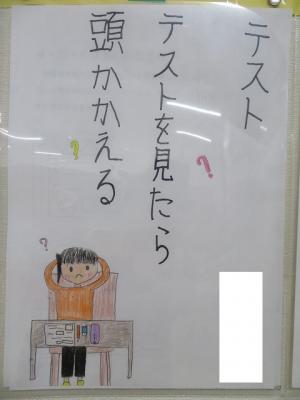 テスト
テストを見たら
頭かかえる
?
?
?